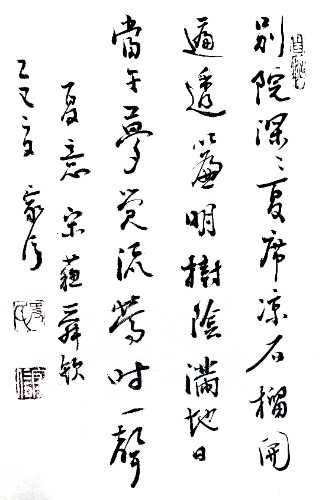 別院深〻夏席凉石榴開
遍透簾明樹陰滿地日
當午夢覺流鶯時一聲
夏意宋蘇舜欽
乙巳夏